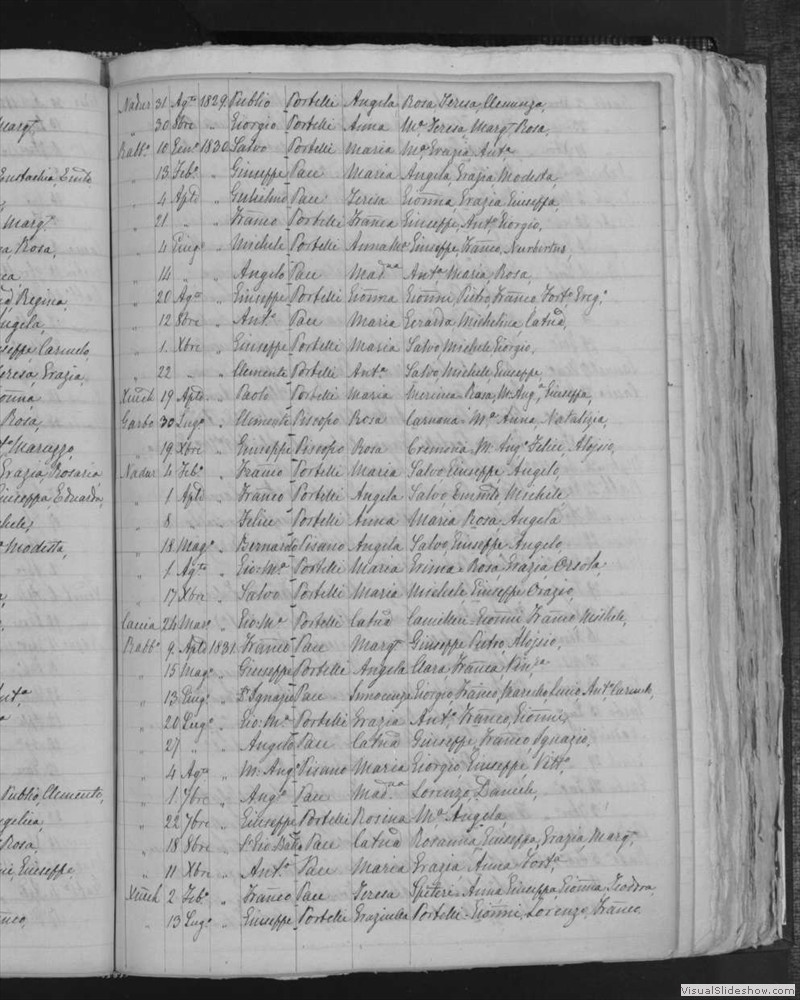 Nadur 31 Agto 1829 Publio Portelli Angela Rosa Teresa Clemenza,
" 30 8bre " Giorgio Portelli Anna Ma Teresa Margt Rosa,
Rabbo 10 Genro 1830 Salvo Portelli Maria Ma Grazia Anta
" 13 Febo " Giuseppe Pace Maria Angela, Grazia Modesta,
" 4 Aple " Gulielmo Pace Teresa Gionna Grazia Giuseppa,
" 21 " " Franco Portelli Franca Giuseppe, Anto Giorgio,
" 4 Giugo " Michele Portelli Giuseppe, Franco, Nurbertus,
" 14 " " Angelo Pace Madaa Anta Maria Rosa,
" 20 Agto " Giuseppe Portelli Gionna Gionni Pietro, Franco Forto Grego
" 12 8bre " Anto Pace Maria Gerarda Michelina Catna,
" 1. Xbre " Giuseppe Portelli Maria Salvo, Michele, Giorgio,
" 22 " " Clemente Portelli Anta Salvo, Michele, Giuseppe,
19 Aple " Paolo Portelli Maria Rosa, M. Anga Giuseppa,
Garbo 30 Lugo " Clemente Piscopo Rosa Caruana Ma Anna, Natalizia,
" 19 Xbre " Giuseppe Piscopo Rosa Cremona, M. Ango Felice, Alojsio,
Nadur 4 Febo " Franco Portelli Maria Salvo, Giuseppe, Angelo,
" 1 Aple " Franco Portelli Angela Salvo, Michele,
" 8 " Felice Portelli Anna Maria Rosa, Angela
" 18 Mago " Bernardo Pisano Angela Salvo, Giuseppe, Angelo
" 1. Agto " Gio: Ma Portelli Maria Rosa, Grazia Orsola,
" 17 Xbre " Salvo Portelli Maria Michele, Giuseppe Orazio,
24 Maro " Gio: Ma Portelli Catna Camilleri Gionni, Franco Michele,
Rabbo 9. Aple 1831. Franco Pace Margt Giuseppe Pietro, Alojsio,
" 15 Mago " Giuseppe Portelli Angela Clara, Franca,
" 13 Giugo " Sr Ignazio Pace Innocenza Giorgio Franco, Lucio Anto Carmelo,
" 20 Lugo " Gio: Ma Portelli Grazia Anto Franco, Gionni,
" 27 " " Angelo Pace Catna Giuseppe, Franco, Ignazio,
" 4 Agto " M. Ango Pisano Maria Giorgio, Giuseppe Vitto
" 1 7bre " Ango Pace Madaa Lorenzo, Daniele,
" 22 7bre " Giuseppe Portelli Rosina Ma Angela,
" 18 8bre " Sr Gio Batta Pace Catna Rosanna, Giuseppa, Grazia Margt
" 11 Xbre " Anto Pace Maria Grazia Anna Forta,
2 Febo " Franco Pace Teresa Spiteri - Anna, Giuseppa, Gionna, Teodora,
" 13 Lugo " Giuseppe Portelli Graziulla Portelli - Gionni, Lorenzo, Franco
Margt,
Eustachia,
Margt
Rosa,
Regina,
Angela,
Carmelo,
Teresa, Grazia,
Rosa,
Grazia, Rosaria
Giuseppa, Eduarda,
Modesta,
Publio, Clemente,
Angelica,
Rosa,
Giuseppe
VisualSlideshow.com